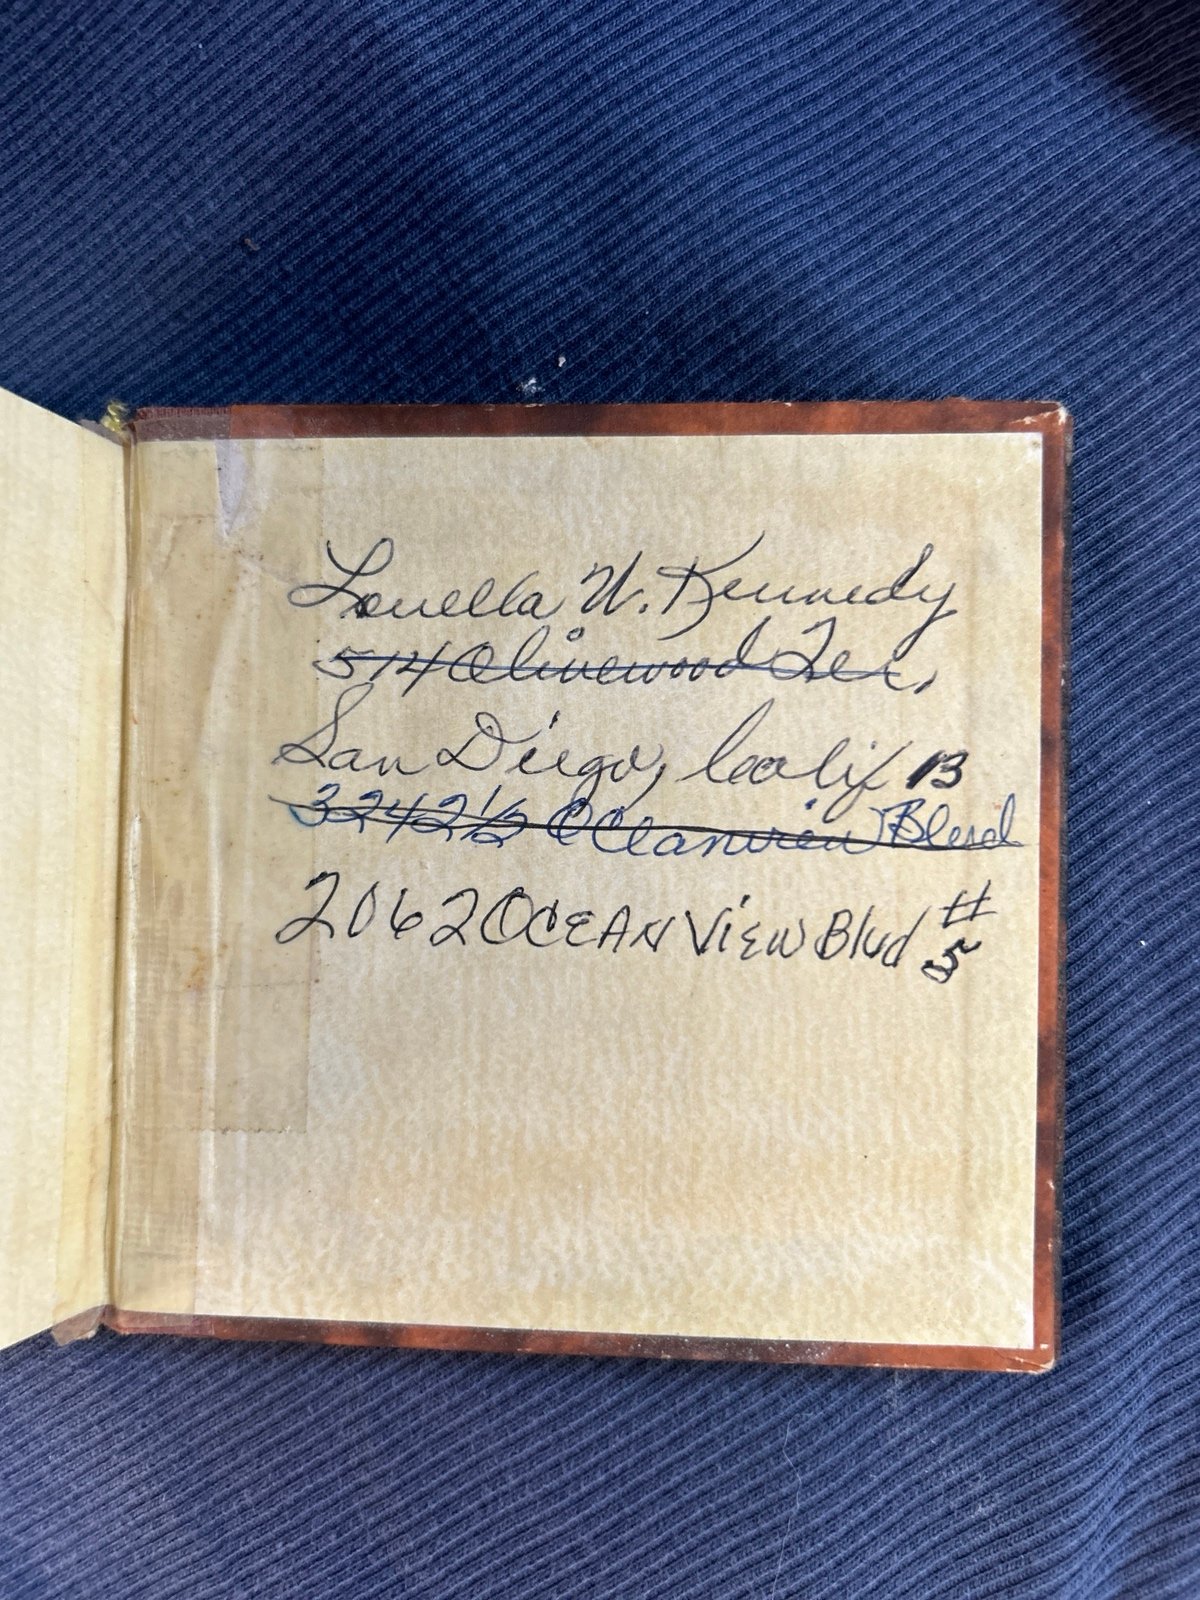 Louella W. Kennedy
514 Olivewood Ter.
San Diego, Calif 13
3242 1/2 Oceanview Blvd
2062 OCEAN View Blvd #5